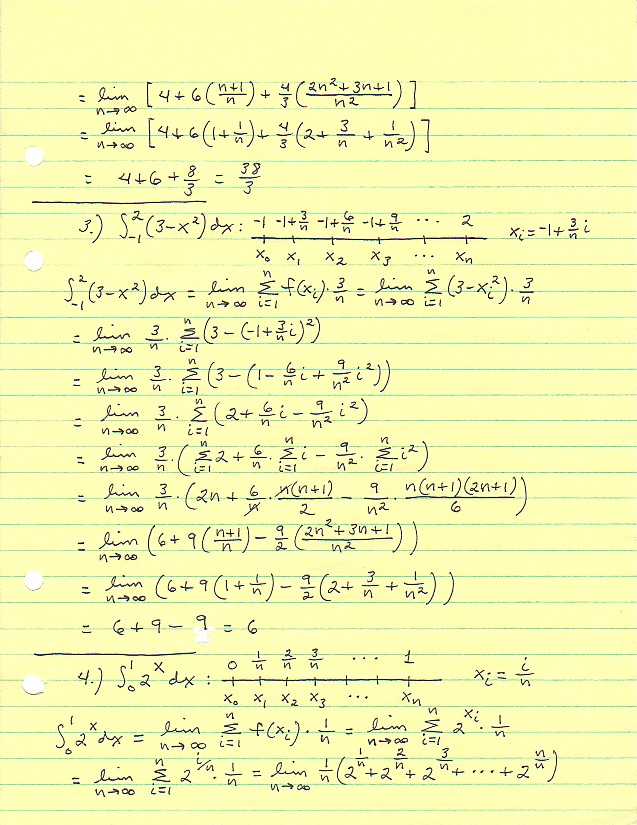 = lim n→∞ [4+6((n+1)/n)+4/3((2n²+3n+1)/n²)]
= lim n→∞ [4+6(1+1/n)+4/3(2+3/n+1/n²)]
= 4+6+8/3 = 38/3
3.) ∫₋₁² (3-x²)dx: -1 -1+3/n -1+6/n -1+9/n ... 2
x₀ x₁ x₂ x₃ ... xₙ xᵢ=-1+3/n i
∫₋₁² (3-x²)dx = lim n→∞ Σ i=1 n f(xᵢ)·3/n = lim n→∞ Σ i=1 n (3-xᵢ²)·3/n
= lim n→∞ 3/n · Σ i=1 n (3-(-1+3/n i)²)
= lim n→∞ 3/n · Σ i=1 n (3-(1-6/n i+9/n² i²))
= lim n→∞ 3/n · Σ i=1 n (2+6/n i-9/n² i²)
= lim n→∞ 3/n · (Σ i=1 n 2+6/n · Σ i=1 n i-9/n² · Σ i=1 n i²)
= lim n→∞ 3/n · (2n+6/n · n(n+1)/2 - 9/n² · n(n+1)(2n+1)/6)
= lim n→∞ (6+9((n+1)/n)-9/2((2n²+3n+1)/n²))
= lim n→∞ (6+9(1+1/n)-9/2(2+3/n+1/n²))
= 6+9-9 = 6
4.) ∫₀¹ 2ˣ dx: 0 1/n 2/n 3/n ... 1
x₀ x₁ x₂ x₃ xₙ xᵢ=i/n
∫₀¹ 2ˣ dx = lim n→∞ Σ i=1 n f(xᵢ)·1/n = lim n→∞ Σ i=1 n 2^xᵢ·1/n
= lim n→∞ Σ i=1 n 2^(i/n)·1/n = lim n→∞ 1/n(2^(1/n)+2^(2/n)+2^(3/n)+...+2^(n/n))